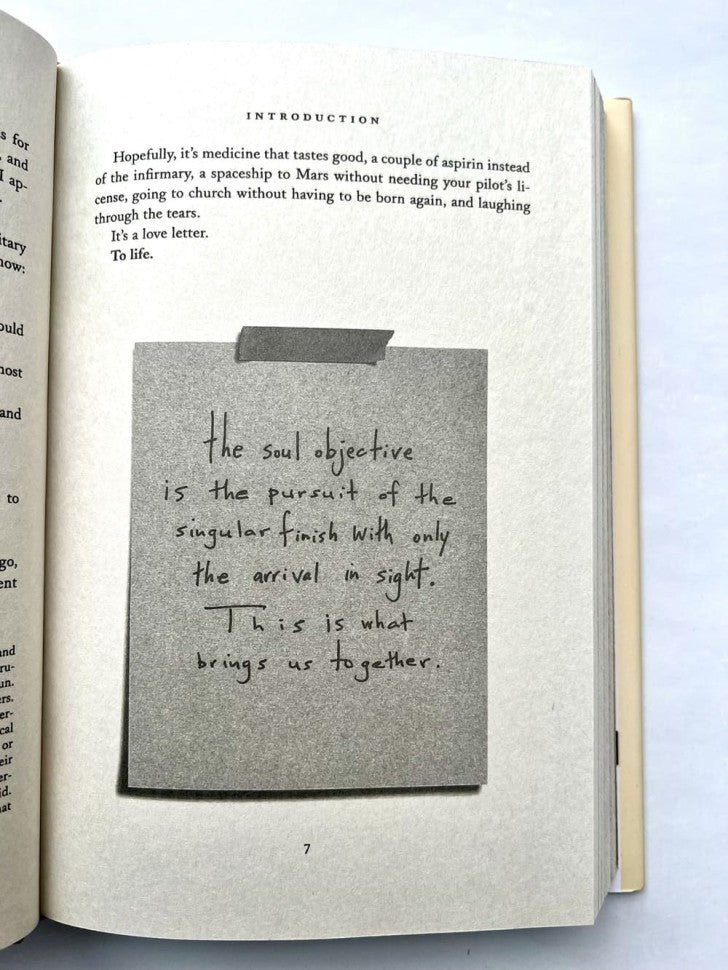 s for
and
I ap-
itary
now:
ould
most
and
to
go,
ent
and
ru-
un.
rs.
er-
cal
or
eir
er-
d.
at
INTRODUCTION
Hopefully, it's medicine that tastes good, a couple of aspirin instead
of the infirmary, a spaceship to Mars without needing your pilot's li-
cense, going to church without having to be born again, and laughing
through the tears.
It's a love letter.
To life.
the soul objective
is the pursuit of the
singular finish with only
the arrival in sight.
This is what
brings us together.
7